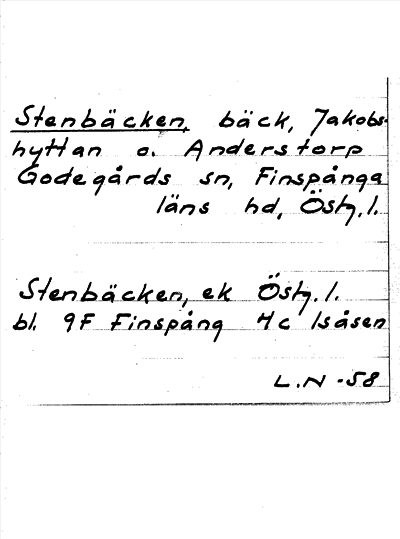 Stenbäcken, bäck, Jakobs-
hyttan o. Anderstorp
Godegårds sn, Finspånga
läns hd, Östg. l.
Stenbäcken, ek Östg. l.
bl. 9F Finspång 4c Isåsen
L.N -58